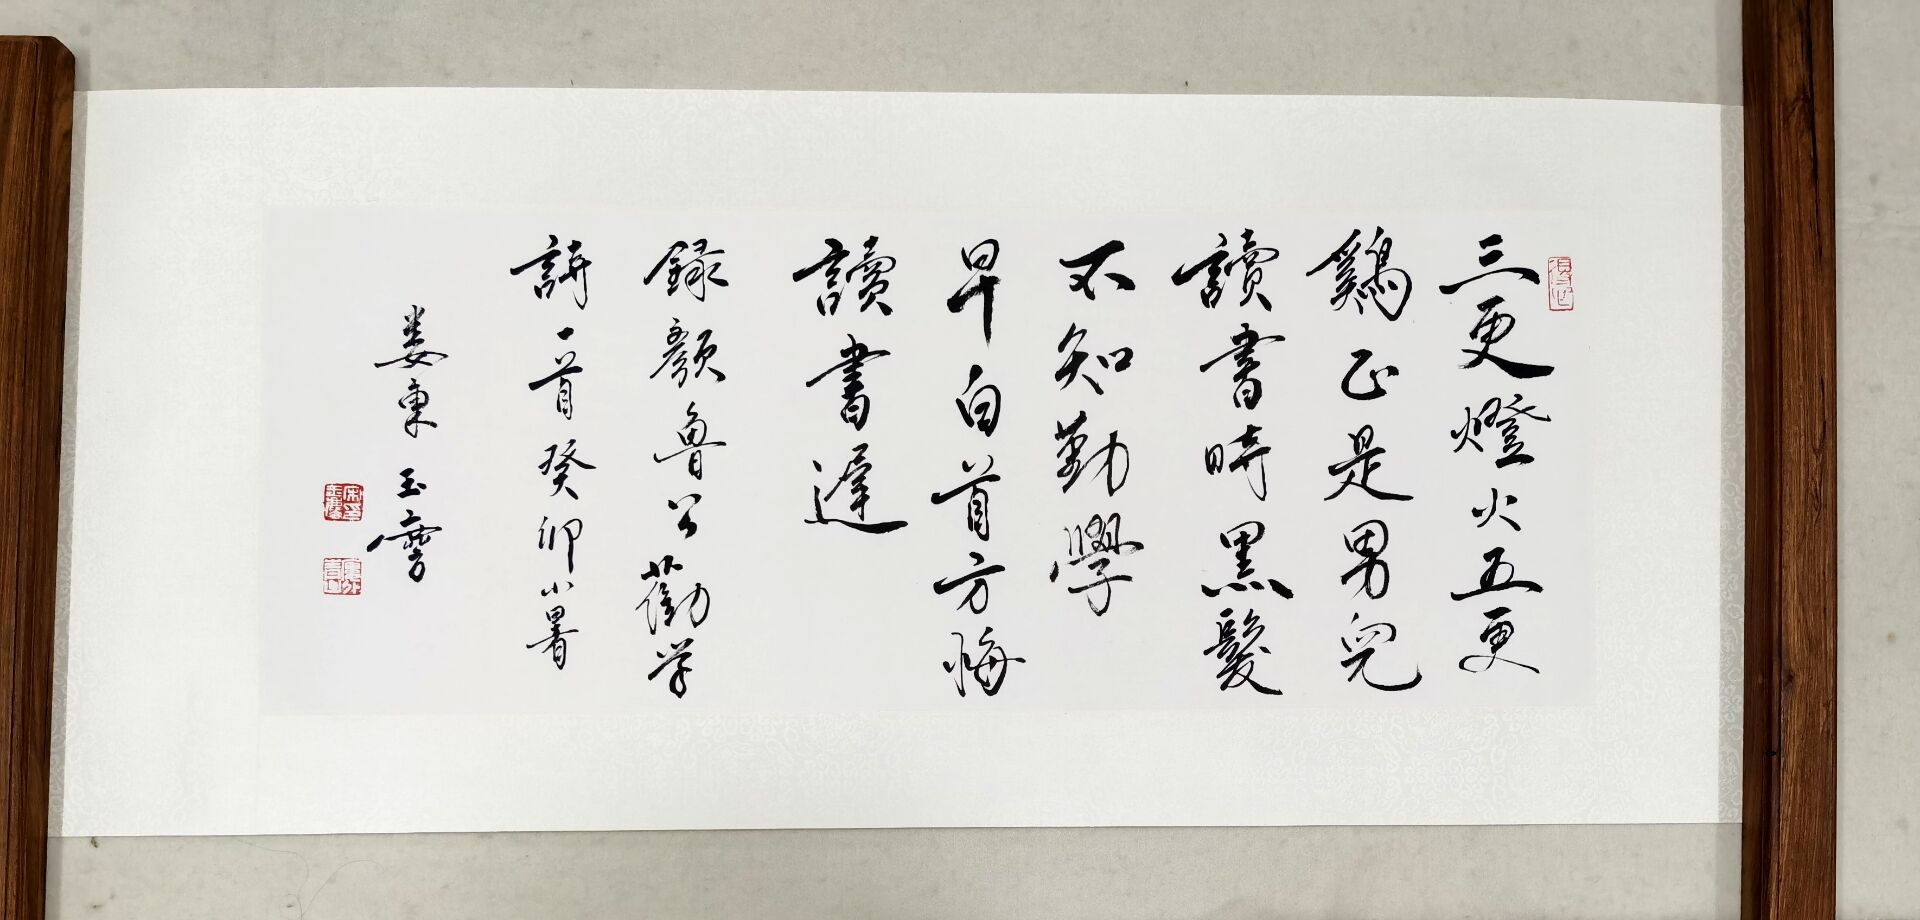 三更燈火五更
鷄正是男兒
讀書時黑髮
不知勤學
早白首方悔
讀書遲
録顏魯公勸学
詩一首癸卯小暑
婁東玉